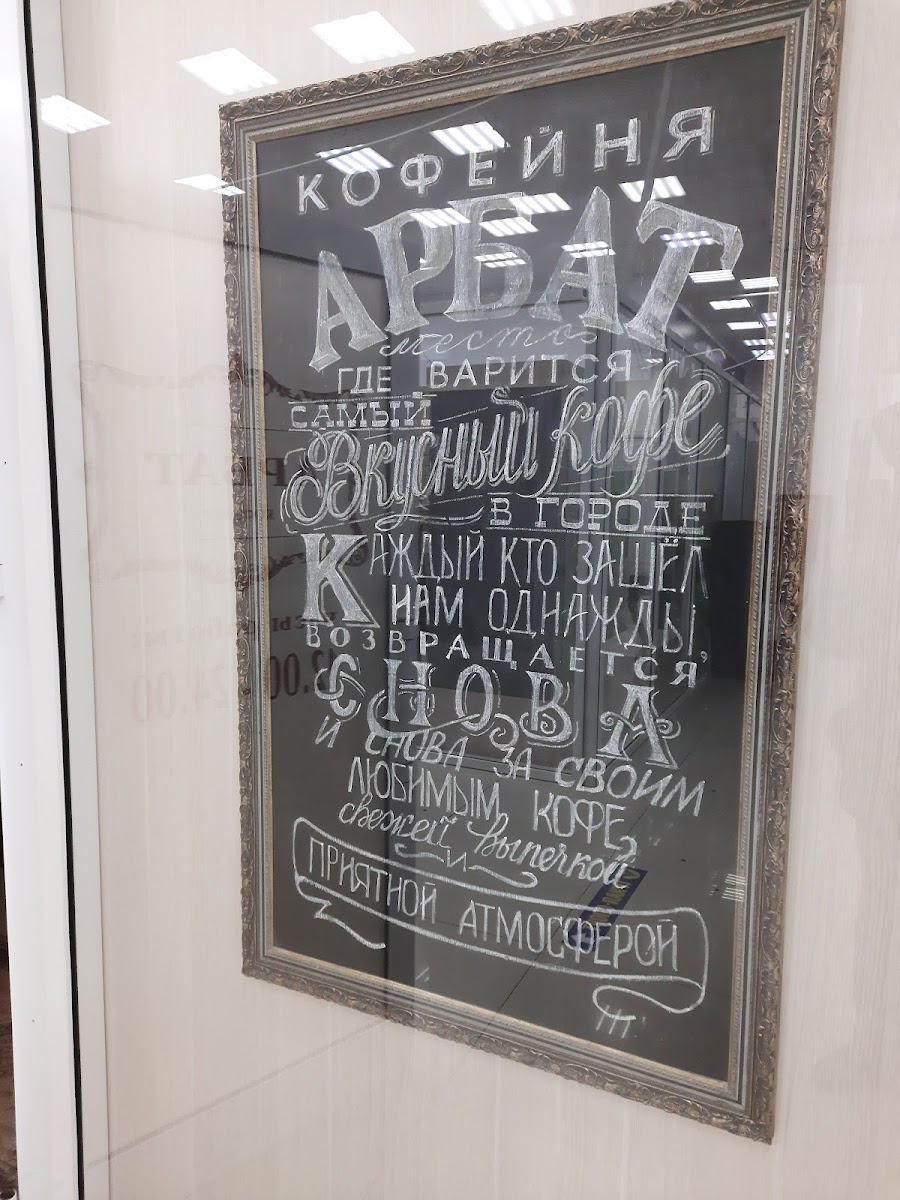 КОФЕЙНЯ
АРБАТ
место
ГДЕ ВАРИТСЯ
САМЫЙ
Вкусный кофе
В ГОРОДЕ
КАЖДЫЙ КТО ЗАШЁЛ
К НАМ ОДНАЖДЫ,
ВОЗВРАЩАЕТСЯ
СНОВА
И СНОВА ЗА СВОИМ
ЛЮБИМЫМ КОФЕ,
свежей выпечкой
И
ПРИЯТНОЙ АТМОСФЕРОЙ